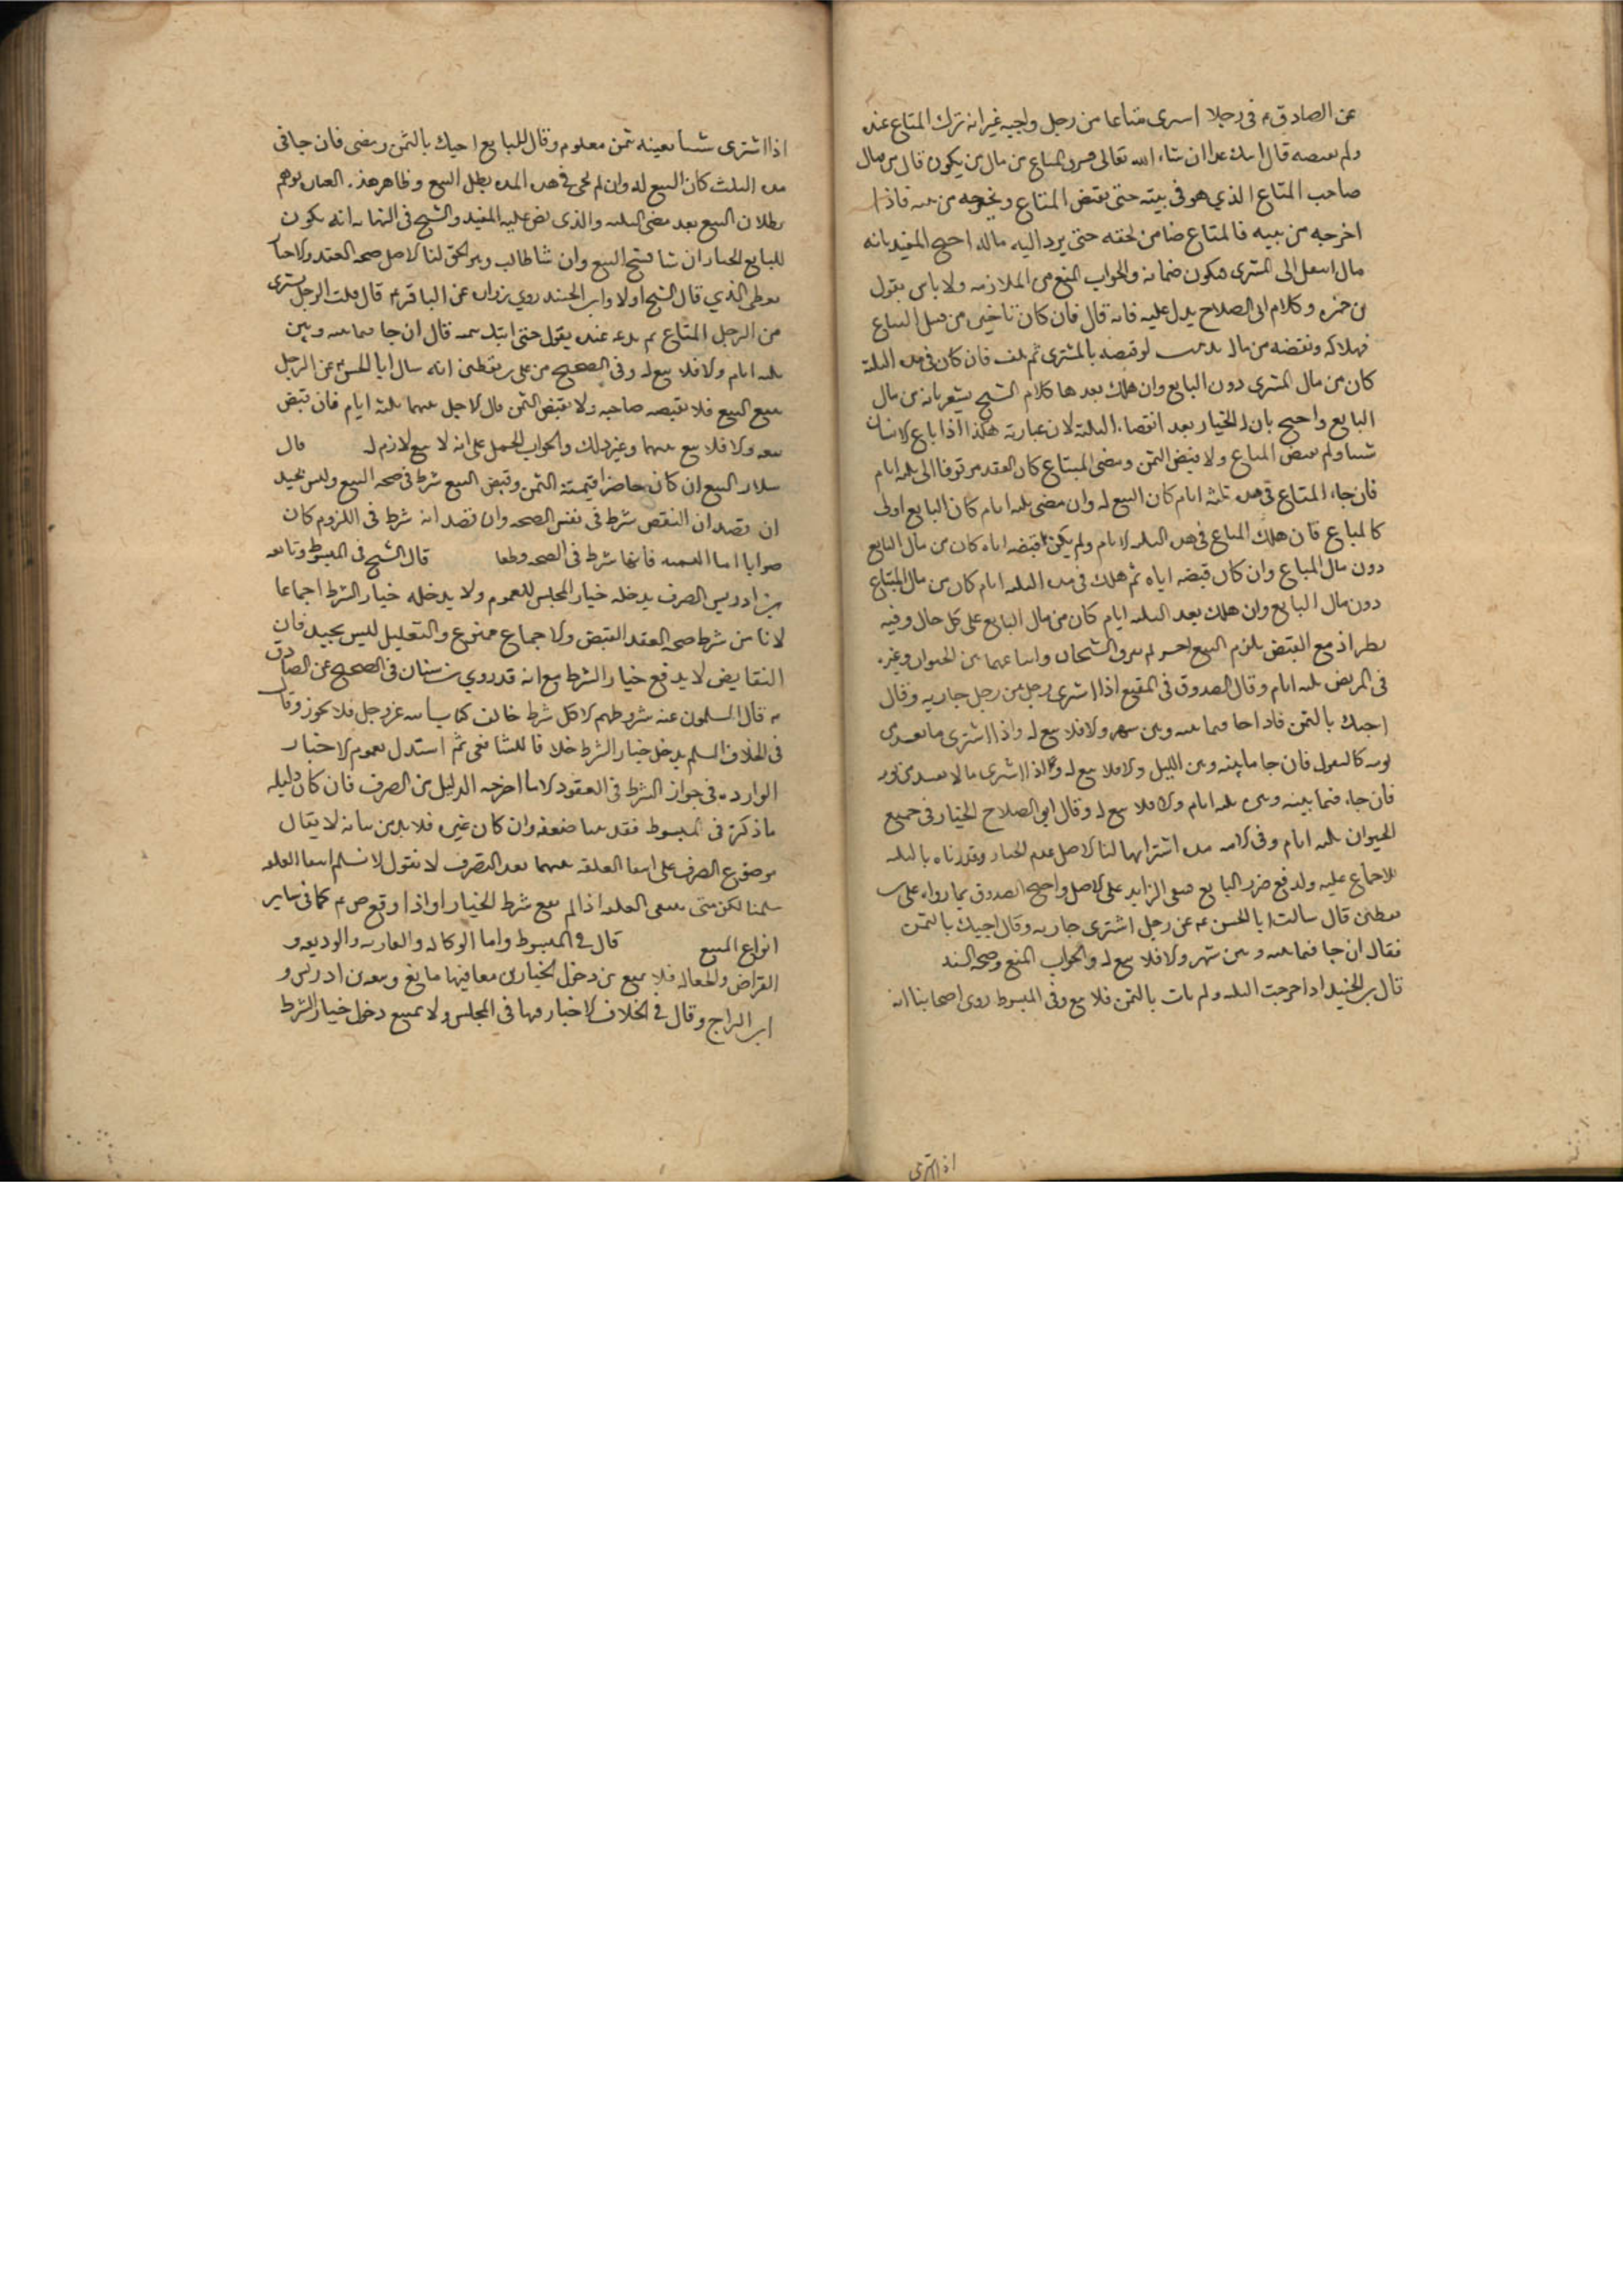 عن الصادق ع فى رجل اسرى متاعا من رجل واجبه غير انه ترك المتاع عنده
ولم يقبضه قال اتيك غدا ان شاء الله تعالى فسرق المتاع من مال من يكون قال من مال
صاحب المتاع الذي هو فى بيته حتى يقبض المتاع ويخرجه من بيته فاذا
اخرجه من بيته فالمتاع ضامن لحقه حتى يرد اليه ماله احتج المفيد بانه
مال انتقل الى المشترى فيكون ضمانه والجواب المنع من الملازمه ولا باس بقول
بن حمزه وكلام ابى الصلاح يدل عليه فانه قال فان كان تاخيره من قبل المبتاع
فهلاكه ونقضه من ماله لو قبضه المشترى ثم تلف فان كان فى مده الثلثة
كان من مال المشترى دون البايع وان هلك بعدها كلام الشيخ يشعر بانه من مال
البايع واحتج بان له الخيار بعد انقضاء الثلثة لان عبارته هكذا اذا باع الانسان
شيا ولم يقبض المتاع ولا قبض الثمن ومضى المبتاع كان العقد موقوفا الى ثلثه ايام
فان جاء المتاع فى مده ثلثه ايام كان البيع له وان مضى ثلثه ايام كان البايع اولى
كالمتاع فان هلك المتاع فى هذه الثلثه الايام ولم يكن قبضه اياه كان من مال البايع
دون مال المبتاع وان كان قبضه اياه ثم هلك فى مده الثلثه ايام كان من مال المبتاع
دون مال البايع وان هلك بعد الثلثه ايام كان من مال البايع على كل حال وفيه
نظر اذ مع القبض يلزم البيع لم يفرق الشيخان واتباعهما بين الحيوان وغيره
فى المريض ثلثه ايام وقال الصدوق فى المقنع اذا اشترى رجل من رجل جاريه وقال
اجيك بالثمن فاذا جا فيما بينه وبين شهر والا فلا بيع له واذا اشترى ما يفسد من
يومه كالبقول فان جا ما بينه وبين الليل والا فلا بيع له واذا اشترى ما لا يفسد من يومه
فان جاء فيما بينه وبين ثلثه ايام والا فلا بيع له وقال ابو الصلاح الخيار فى جميع
الحيوان ثلثه ايام وفى الامه مده استبرائها لنا الاصل عدم الخيار وقدرناه بالثلثه
للاجماع عليه ولدفع ضرر البايع فبقى الزايد على الاصل واحتج الصدوق بما رواه على بن
يقطين قال سالت ابا الحسن ع عن رجل اشترى جاريه وقال اجيك بالثمن
فقال ان جا فيما بينه وبين شهر والا فلا بيع له والجواب المنع وصحه السند
قال بن الجنيد اذا خرجت الثلثه ولم يات بالثمن فلا بيع وفى المبسوط روى اصحابنا انه
اذا اشترى
اذا اشترى شيا بعينه بثمن معلوم وقال للبايع اجيك بالثمن ومضى فان جا فى
مده الثلث كان البيع له وان لم يجى فى هذه المده بطل البيع وظاهر هذه العباره يوهم
بطلان البيع بعد مضى الثلثه والذى نص عليه المفيد والشيخ فى النهايه انه يكون
للبايع الخيار ان شا فسخ البيع وان شا طالب وهو الحق لنا الاصل صحه العقد والاحتياط
يعطى الذي قال الشيخ اولا وابن الجنيد روي زراره عن الباقر ع قال قلت الرجل يشترى
من الرجل المتاع ثم يدعه عنده يقول حتى اتيك بثمنه قال ان جا فيما بينه وبين
ثلثه ايام والا فلا بيع له وفى الصحيح عن على بن يقطين انه سال ابا الحسن ع عن الرجل
يبيع البيع فلا يقبضه صاحبه ولا يقبض الثمن قال الاجل بينهما ثلثة ايام فان قبض
بيعه والا فلا بيع بينهما وغير ذلك والجواب الحمل على انه لا بيع لازم له قال
سلار البيع ان كان حاضرا فتسمية الثمن وقبض البيع شرط فى صحه البيع وليس بجيد
ان قصد ان القبض شرط فى نفس الصحه وان قصد انه شرط فى اللزوم كان
صوابا اما التسميه فانها شرط فى الصحه قطعا قال الشيخ فى المبسوط وتابعه
بن ادريس الصرف يدخله خيار المجلس للعموم ولا يدخله خيار الشرط اجماعا
لان من شرط صحه العقد القبض والاجماع ممنوع والتعليل ليس بجيد فان
التقابض لا يدفع خيار الشرط مع انه قد روي بن سنان فى الصحيح عن الصادق
ع قال المسلمون عند شروطهم الا كل شرط خالف كتاب الله عز وجل فلا يجوز وقال
فى الخلاف السلم يدخل خيار الشرط خلافا للشافعى ثم استدل بعموم الاخبار
الوارده فى جواز الشرط فى العقود الا ما اخرجه الدليل من الصرف فان كان دليله
ما ذكره فى المبسوط فقد بينا ضعفه وان كان غيره فلا بد من بيانه لا يقال
موضوع الصرف على انتفا العلقة بينهما بعد التصرف لانا نقول لا نسلم انتفا العلقه
سلمنا لكن متى ينتفى العلقه اذا لم يقع شرط الخيار او اذا وقع ع م كما فى ساير
انواع المبيع قال فى المبسوط واما الوكاله والعاريه والوديعه و
القراض والجعاله فلا يمنع من دخول الخيارين معا فيها مانع وتبعه بن ادريس و
ابن البراج وقال فى الخلاف لا خيار فيها فى المجلس ولا يمتنع دخول خيار الشرط